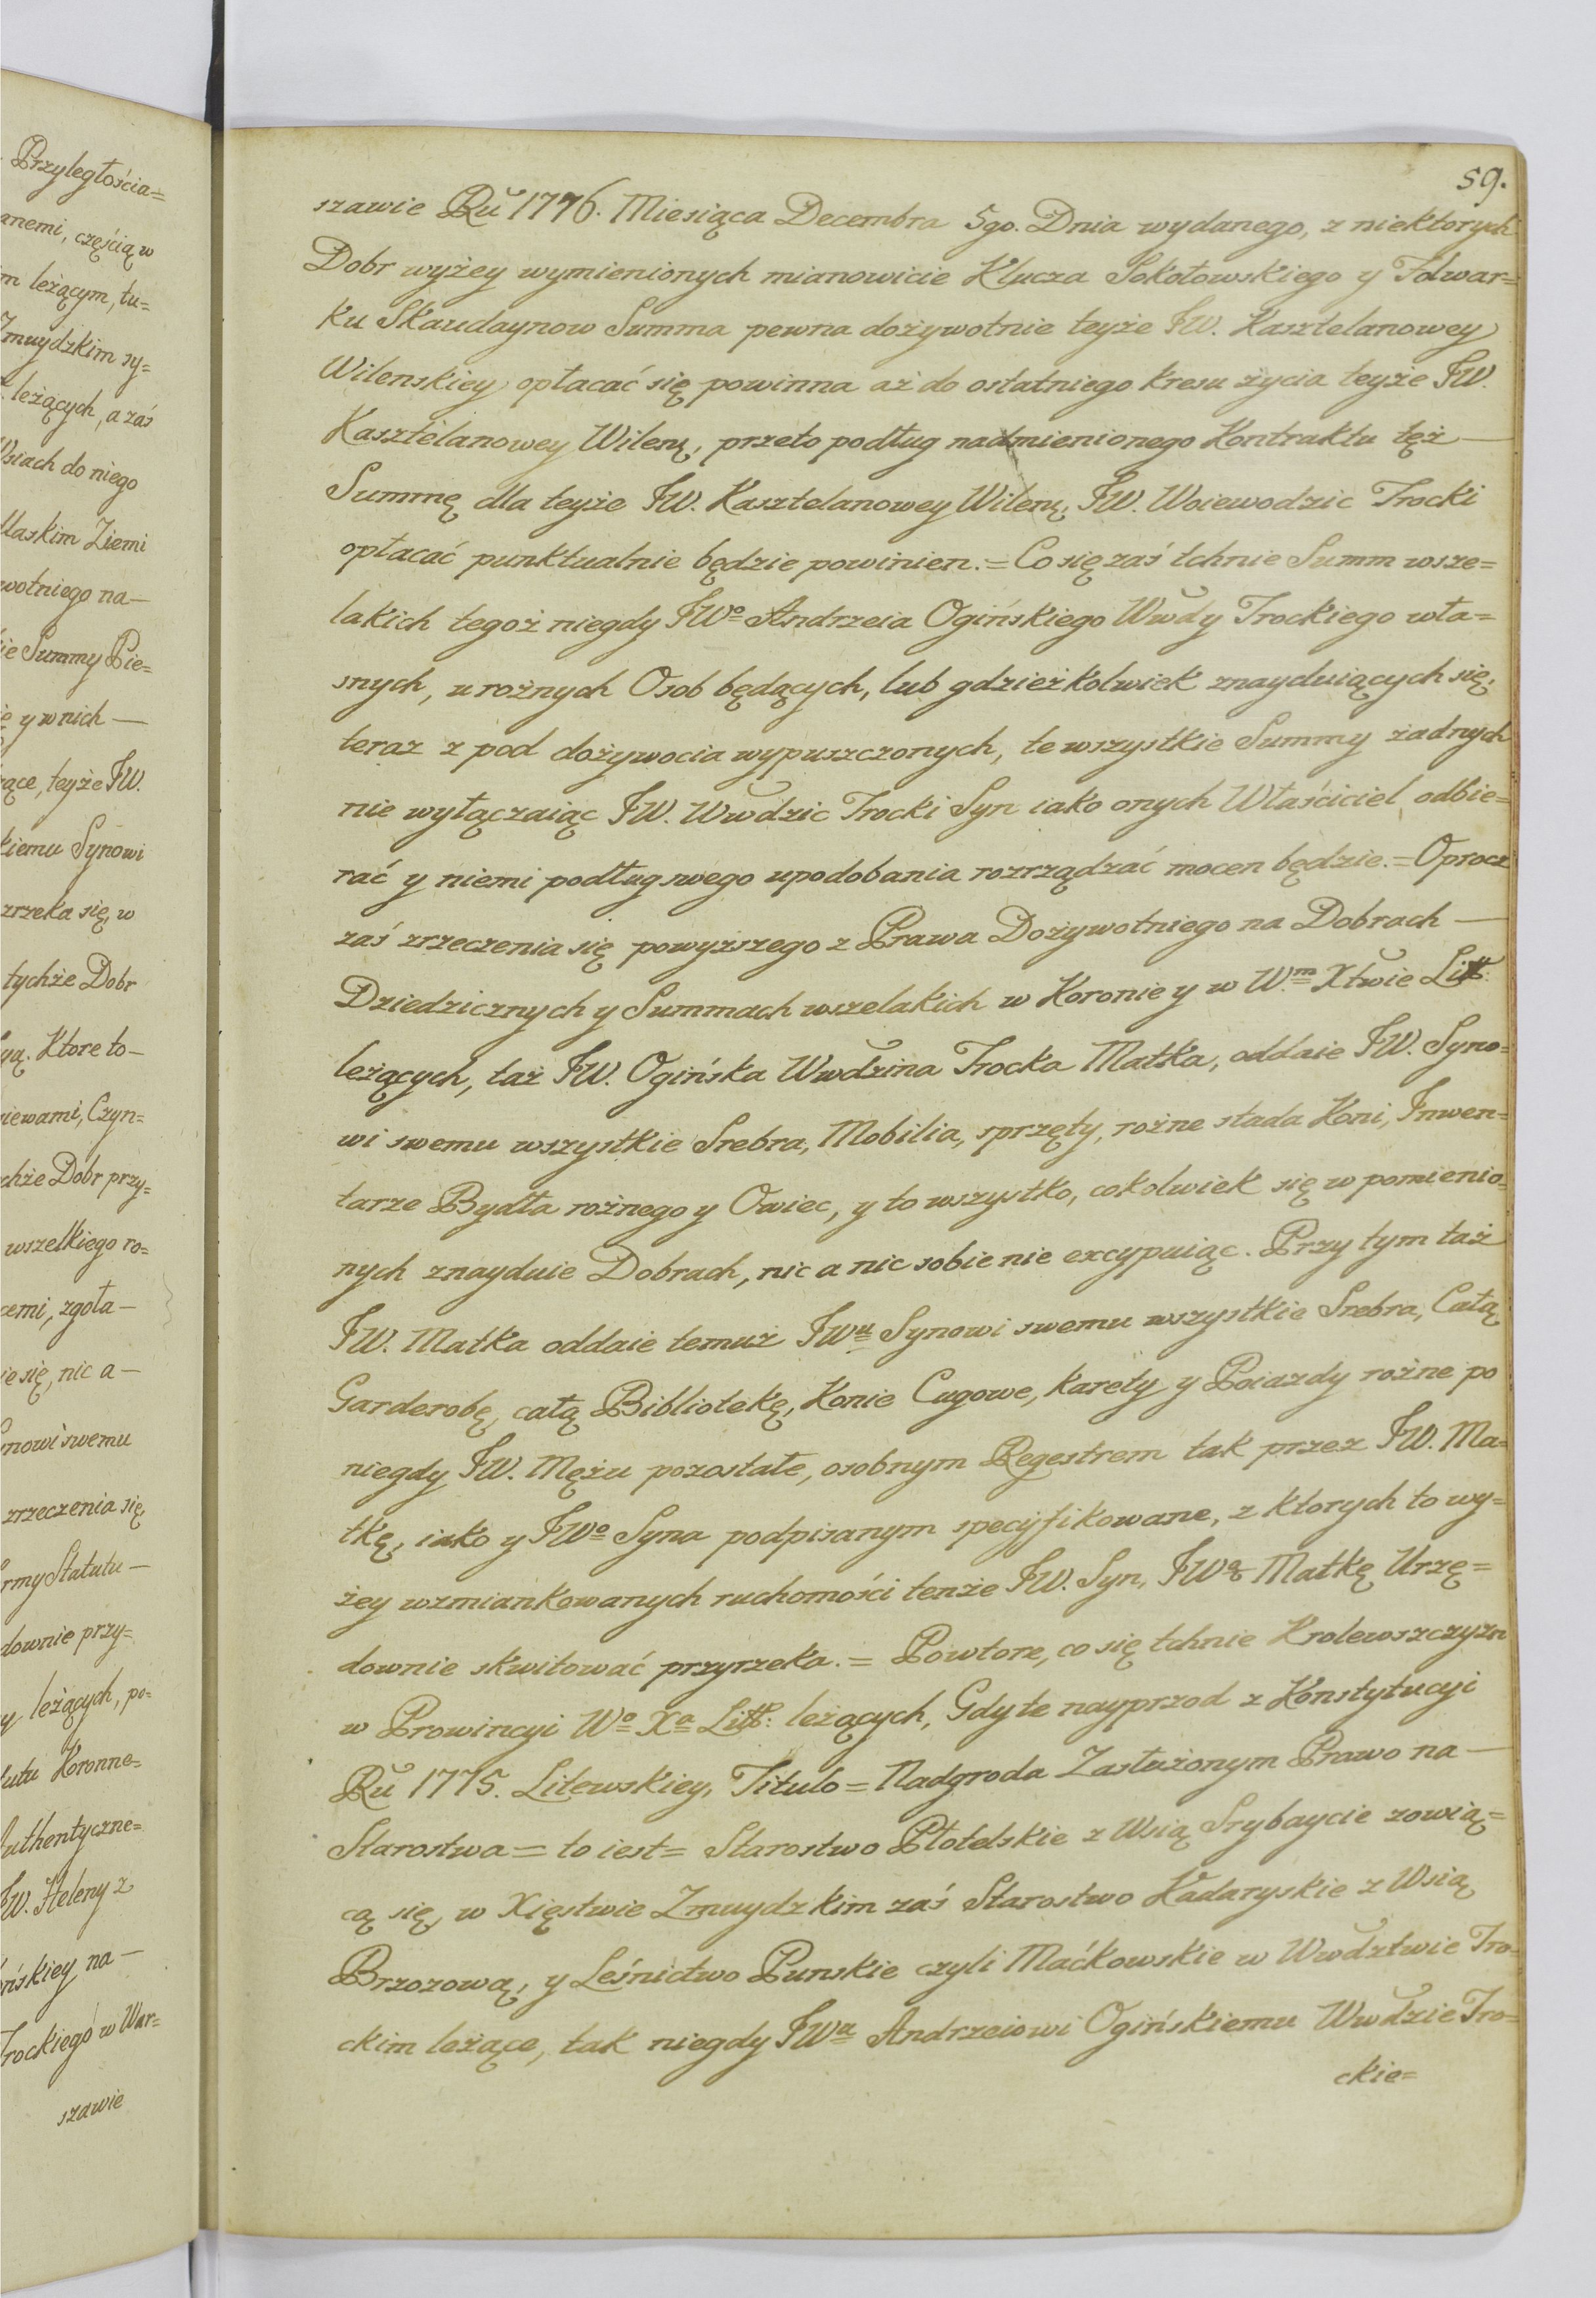 Przyległościa=
anemi, częścią w
m leżącym, tu=
Zmuydzkim sy=
leżących, a zaś
Wsiach do niego
dlaskim Ziemi
wotniego na—
ie Summy Pie=
ię y w nich —
ące, teyże JW.
kiemu Synowi
zrzeka się, w
tychże Dobr
Ktore to—
iewami, Czyn=
chże Dobr przy=
wszelkiego ro=
cemi, zgoła —
ie się, nic a —
ynowi swemu
zrzeczenia się
ormy Statutu —
downie przy=
y leżących, po=
tutu Koronne=
Authentyczne=
JW. Heleny z
ńskiey na —
Trockiego w War=
szawie
59.
szawie Rŭ 1776. Miesiąca Decembra 5go. Dnia wydanego, z niektorych
Dobr wyżey wymienionych mianowicie Klucza Sokołowskiego y Folwar=
ku Skaudaynow Summa pewna dożywotnie teyże JW. Kasztelanowey
Wilenskiey opłacać się powinna aż do ostatniego kresu życia teyże JW.
Kasztelanowey Wileṇ, przeto podług nadmienionego Kontraktu tęż —
Summę dla teyże JW. Kasztelanowey Wileṇ, JW. Woiewodzic Trocki
opłacać punktualnie będzie powinien. = Co się zaś tchnie Summ wsze=
lakich tegoż niegdy JWo Andrzeia Ogińskiego Wwdy Trockiego wła=
snych, u rożnych Osob będących, lub gdzieżkolwiek znayduiących się,
teraz z pod dożywocia wypuszczonych, te wszystkie Summy żadnych
nie wyłączaiąc JW. Wwdzic Trocki Syn iako onych Właściciel odbie=
rać y niemi podług swego upodobania rozrządzać mocen będzie. = Oprocz
zaś zrzeczenia się powyższego z Prawa Dożywotniego na Dobrach —
Dziedzicznych y Summach wszelakich w Koronie y w W.m Xtwie Litt:
leżących, taż JW. Ogińska Wwdzina Trocka Matka, oddaie JW. Syno=
wi swemu wszystkie Srebra, Mobilia, sprzęty, rożne stada Koni, Inwen=
tarze Bydła rożnego y Owiec, y to wszystko, cokolwiek się w pomienio=
nych znayduie Dobrach, nic a nic sobie nie excypuiąc. Przy tym taż
JW. Matka oddaie temuż JWu Synowi swemu wszystkie Srebra, Całą
Garderobę, całą Bibliotekę, Konie Cugowe, karety y Poiazdy rożne po
niegdy JW. Mężu pozostałe, osobnym Regestrem tak przez JW. Ma=
tkę, iako y JWo Syna podpisanym specyfikowane, z ktorych to wy=
żey wzmiankowanych ruchomości tenże JW. Syn, JWą Matkę Urzę=
downie skwitować przyrzeka. = Powtore, co się tchnie Krolewszczyzn
w Prowincyi Wo Xa Litt: leżących, Gdy te nayprzod z Konstytucyi
Rŭ 1775. Litewskiey, Titulo = Nadgroda Zasłużonym Prawo na —
Starostwa = to iest = Starostwo Płotelskie z Wsią Srybaycie zowią=
cą się, w Xięstwie Zmuydzkim zaś Starostwo Kadaryskie z Wsią
Brzozową, y Leśnictwo Punskie czyli Maćkowskie w Wwdztwie Tro=
ckim leżące, tak niegdy JWu Andrzeiowi Ogińskiemu Wwdzie Tro=
ckie=